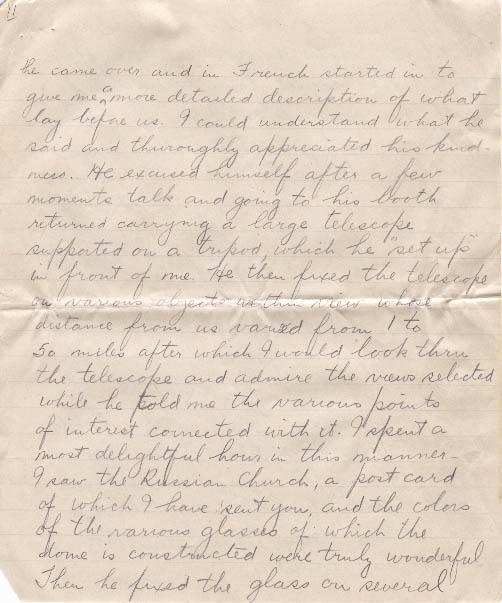 11
he came over and in French started in to
give me a more detailed description of what
lay before us. I could understand what he
said and thuroughly appreciated his kind-
ness. He excused himself after a few
moments talk and going to his booth
returned carrying a large telescope
supported on a tripod, which he "set up"
in front of me. He then fixed the telescope
on various objects within view whose
distance from us varied from 1 to
50 miles after which I would look thru
the telescope and admire the views selected
while he told me the various points
of interest connected with it. I spent a
most delightful hour in this manner-
I saw the Russian Church, a post card
of which I have sent you, and the colors
of the various glasses of which the
dome is constructed were truly wonderful
Then he fixed the glass on several